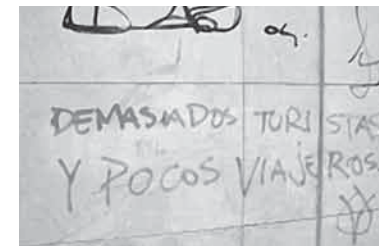 DEMASIADOS TURISTAS
Y POCOS VIAJEROS